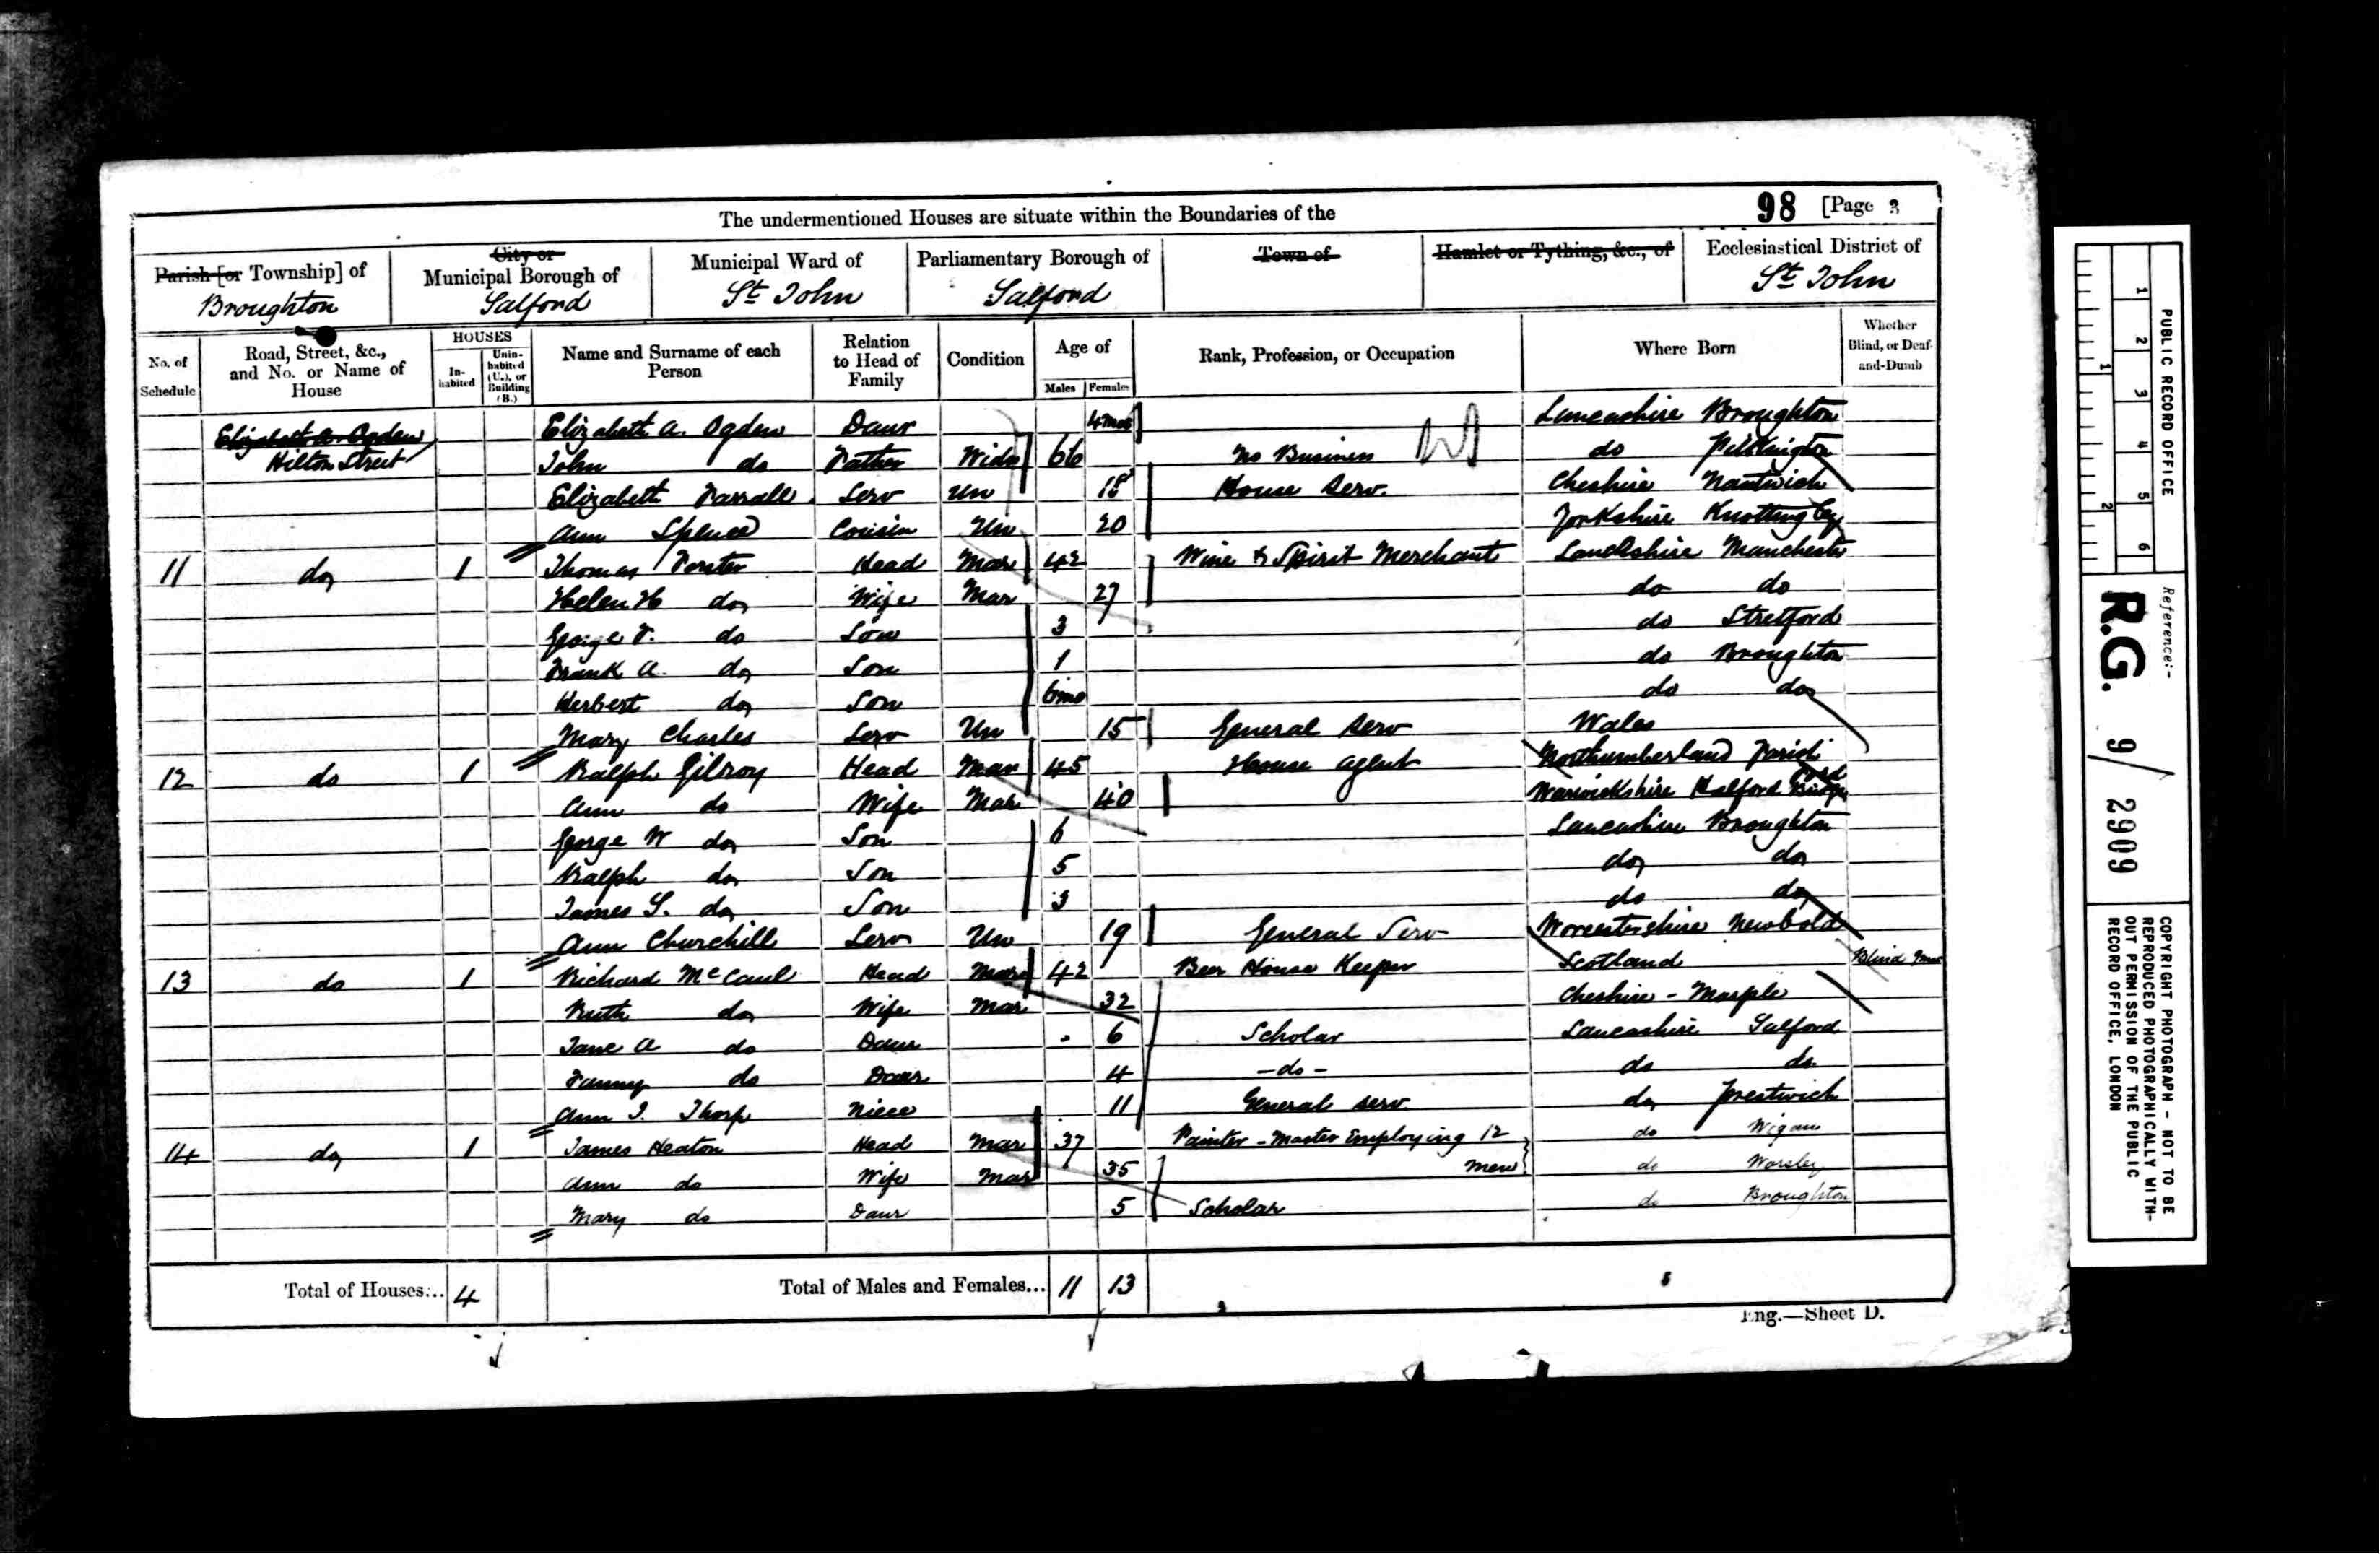 The undermentioned Houses are situate within the Boundaries of the 98 [Page 3
Parish [or Township] of City or Municipal Borough of Municipal Ward of Parliamentary Borough of Town of Hamlet or Tything, &c., of Ecclesiastical District of
Broughton Salford St John Salford St John
No. of Schedule Road, Street, &c., and No. or Name of House HOUSES In-habited Unin-habited (U.), or Building (B.) Name and Surname of each Person Relation to Head of Family Condition Age of Males Females Rank, Profession, or Occupation Where Born Whether Blind, or Deaf-and-Dumb
Elizabeth A. Ogden Elizabeth A. Ogden Daur 4 mos Lancashire Broughton
Hilton Street John do Father Widr 66 No Business do Pilkington
Elizabeth Farrall Serv Un 18 House Serv. Cheshire Nantwich
Ann Spence Cousin Un 20 Yorkshire Knottingley
11 do 1 Thomas Forster Head Mar 42 Wine & Spirit Merchant Lancashire Manchester
Helen H do Wife Mar 27 do do
George F. do Son 3 do Stretford
Frank A. do Son 1 do Broughton
Herbert do Son 6 mo do do
Mary Charles Serv Un 15 General Serv Wales
12 do 1 Ralph Gilroy Head Mar 45 House Agent Northumberland
Ann do Wife Mar 40 Warwickshire Halford Bridge
George W do Son 6 Lancashire Broughton
Ralph do Son 5 do do
James S. do Son 3 do do
Ann Churchill Serv Un 19 General Serv Worcestershire Newbold
13 do 1 Richard McCaul Head Mar 42 Beer House Keeper Scotland Blind
Ruth do Wife Mar 32 Cheshire - Marple
Jane A do Daur 6 Scholar Lancashire Salford
Fanny do Daur 4 - do - do do
Ann I. Thorp Niece 11 General serv. do Prestwich
14 do 1 James Heaton Head Mar 37 Painter - Master Employing 12 do Wigan
Ann do Wife Mar 35 men do Worsley
Mary do Daur 5 Scholar do Broughton
Total of Houses... 4 Total of Males and Females... 11 13
Eng.—Sheet D.
1 2 3 4 5 6
1 2
PUBLIC RECORD OFFICE
Reference:-
R.G. 9/2909
COPYRIGHT PHOTOGRAPH - NOT TO BE
REPRODUCED PHOTOGRAPHICALLY WITH-
OUT PERMISSION OF THE PUBLIC
RECORD OFFICE, LONDON